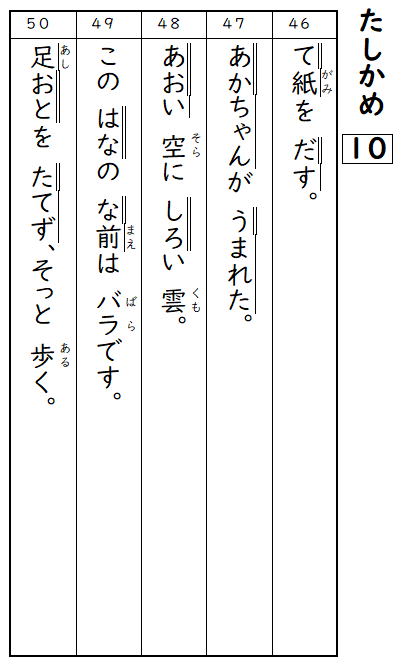 たしかめ 10
46
て紙を だす。
がみ
47
あかちゃんが うまれた。
48
あおい 空に しろい 雲。
そら
くも
49
この はなの な前は バラです。
まえ
ばら
50
足おとを たてず、そっと 歩く。
あし
ある